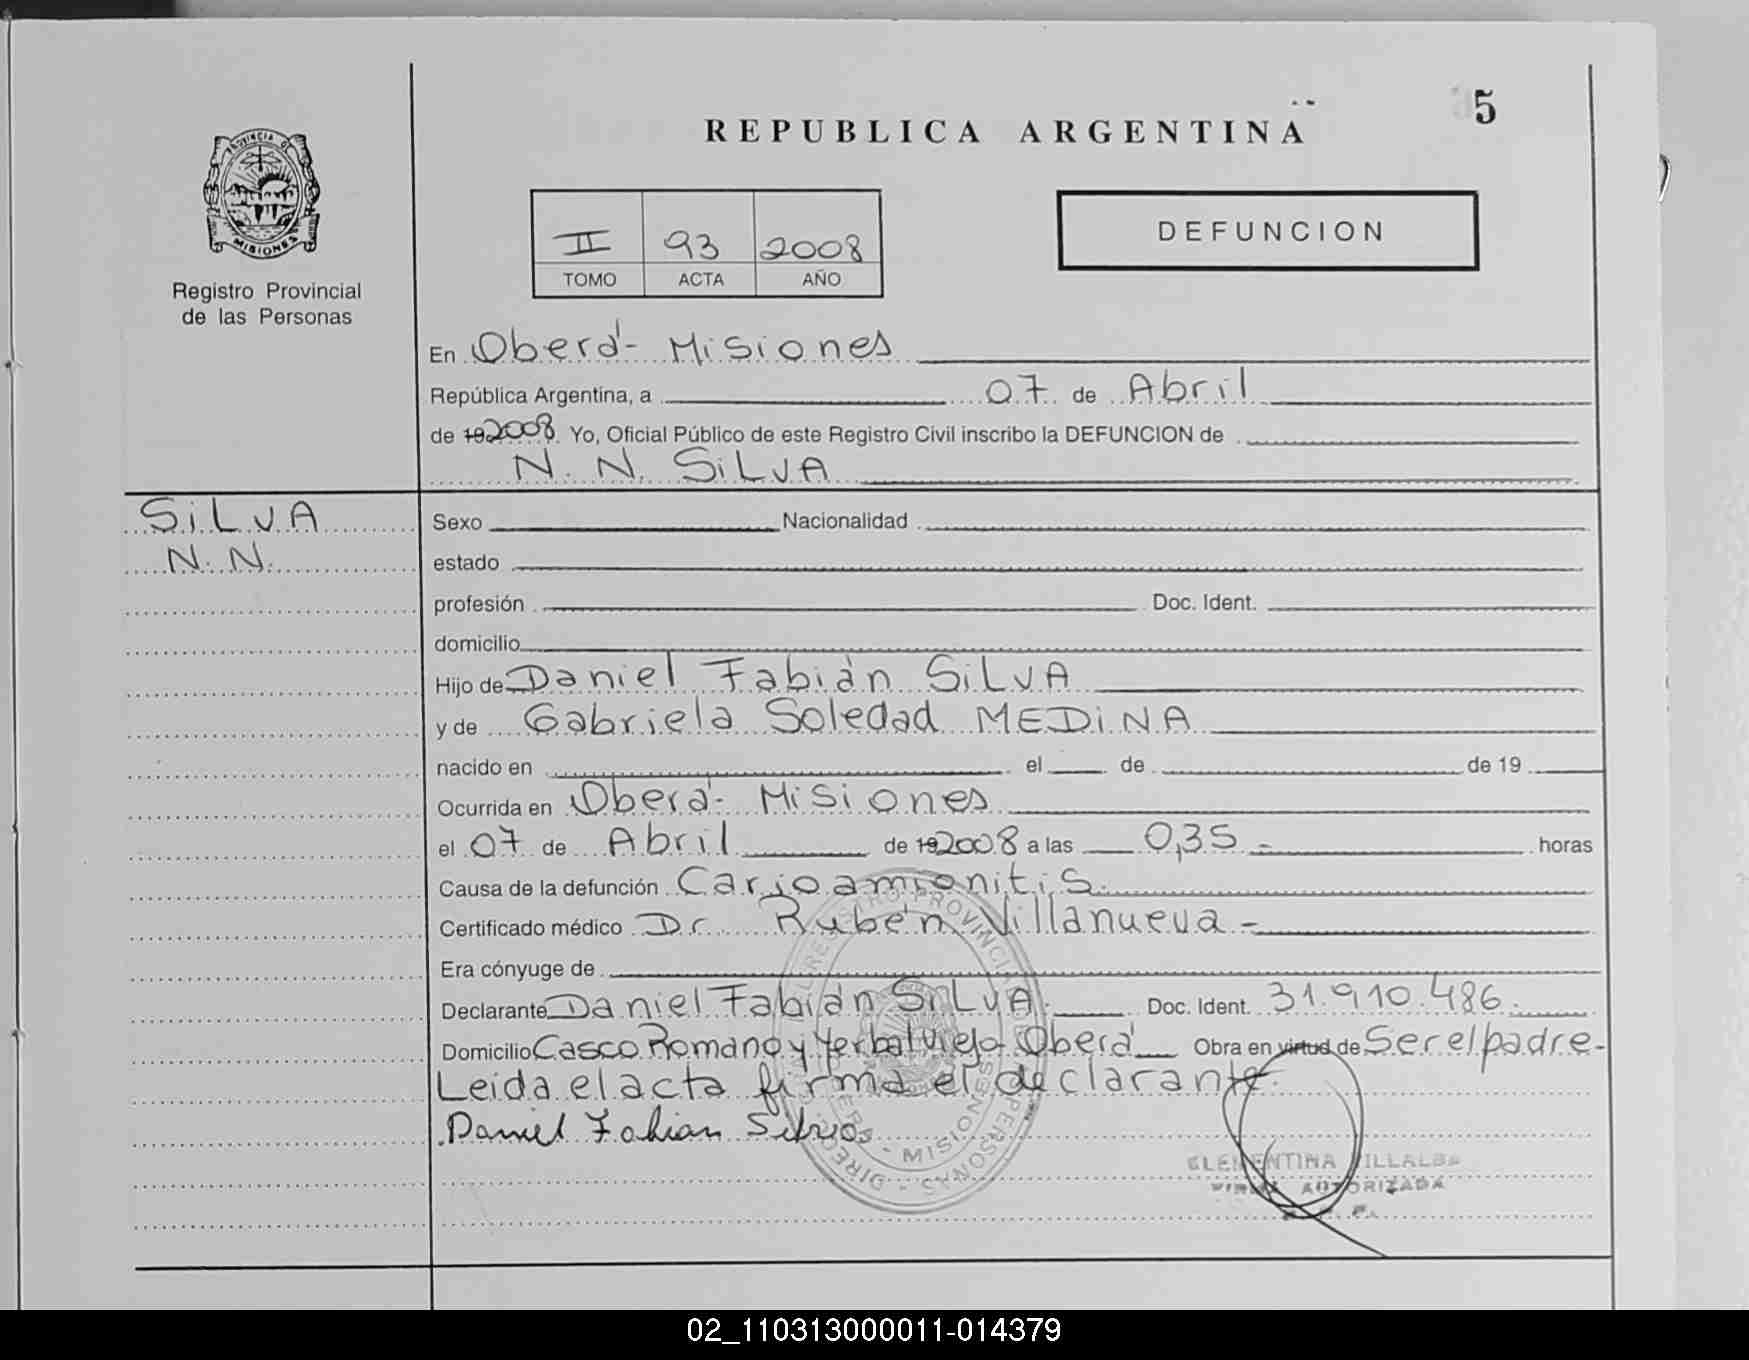 5
REPUBLICA ARGENTINA
PROVINCIA DE
MISIONES
Registro Provincial
de las Personas
II 93 2008
TOMO ACTA AÑO
DEFUNCION
En Oberá - Misiones
República Argentina, a 07 de Abril
de 19 2008. Yo, Oficial Público de este Registro Civil inscribo la DEFUNCION de
N. N. SiLVA
SiLVA
N. N.
Sexo Nacionalidad
estado
profesión Doc. Ident.
domicilio
Hijo de Daniel Fabián SiLVA
y de Gabriela Soledad MEDiNA
nacido en el de de 19
Ocurrida en Oberá - Misiones
el 07 de Abril de 19 2008 a las 0,35 - horas
Causa de la defunción Carioamionitis.
Certificado médico Dr. Rubén Villanueva -
Era cónyuge de
Declarante Daniel Fabián SiLVA. Doc. Ident. 31.910.486.
Domicilio Casco Romano y Yerbal Viejo Oberá Obra en virtud de Ser el padre-
Leida el acta firma el declarante.
Daniel Fabian
MISIONES
CLEMENTINA VILLALBA
AUTORIZADA
02_110313000011-014379